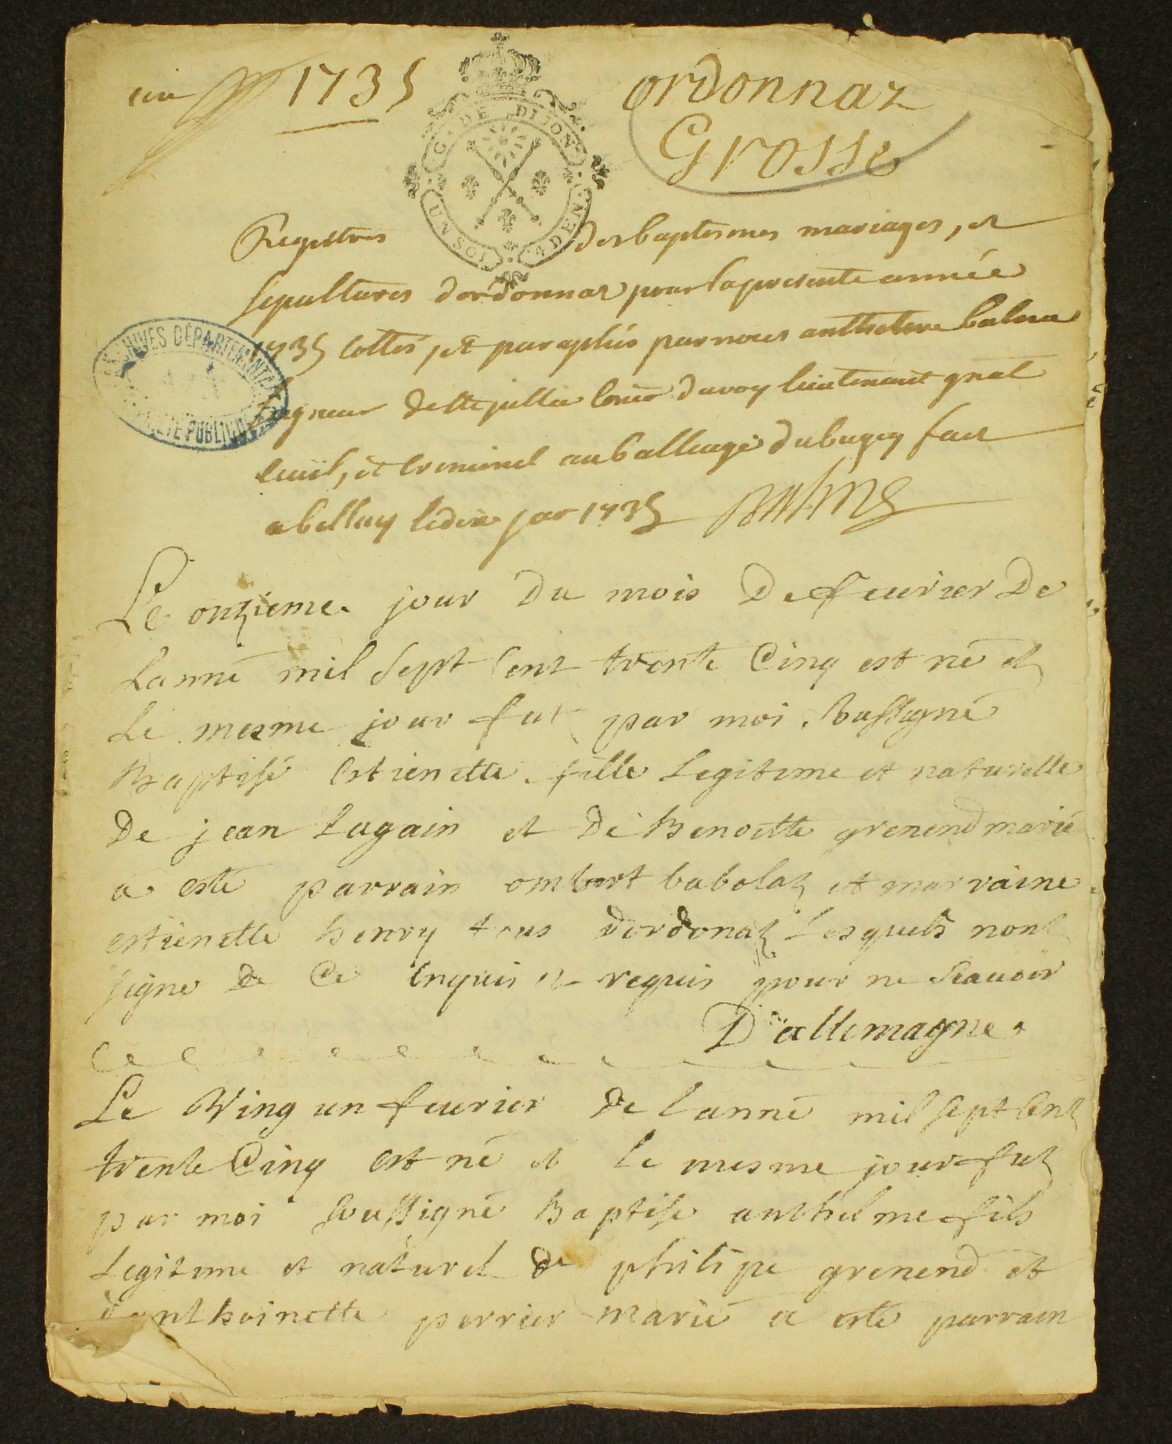 1735
ordonnaz
Grosse
G. DE DIJON
UN SOL 4 DEN
Registres des baptesmes mariages, et
sepultures dordonnaz pour la presente année
1735 cottés, et paraphés par nous anthelme balme
seigneur de Ste jullie coner du roy lieutenant gnal
civil, et criminel au balliage du bugey fait
a belley le dixe jar 1735 Balme
ARCHIVES DÉPARTEMENTALES
PROPRIÉTÉ PUBLIQUE
Le onzieme jour Du mois De feurier De
Lanné mil sept Cent trente Cinq est né et
Le mesme jour fut par moi soussigné
Baptisé Estienette fille Legitime et naturelle
De jean Lugain et De Benoitte grenend marié
a esté parrain ombert babolaz et marraine
estienette henry tous Dordonaz Lesquels nont
signe de Ce Enquis et requis pour ne scauoir
D'allemagne.
Le Ving un feurier de Lanné mil sept Cent
trente Cinq est né et le mesme jour fut
par moi soussigné Baptise anthelme fils
Legitime et naturel de philipe grenend et
danthoinette perrier marié a esté parrain